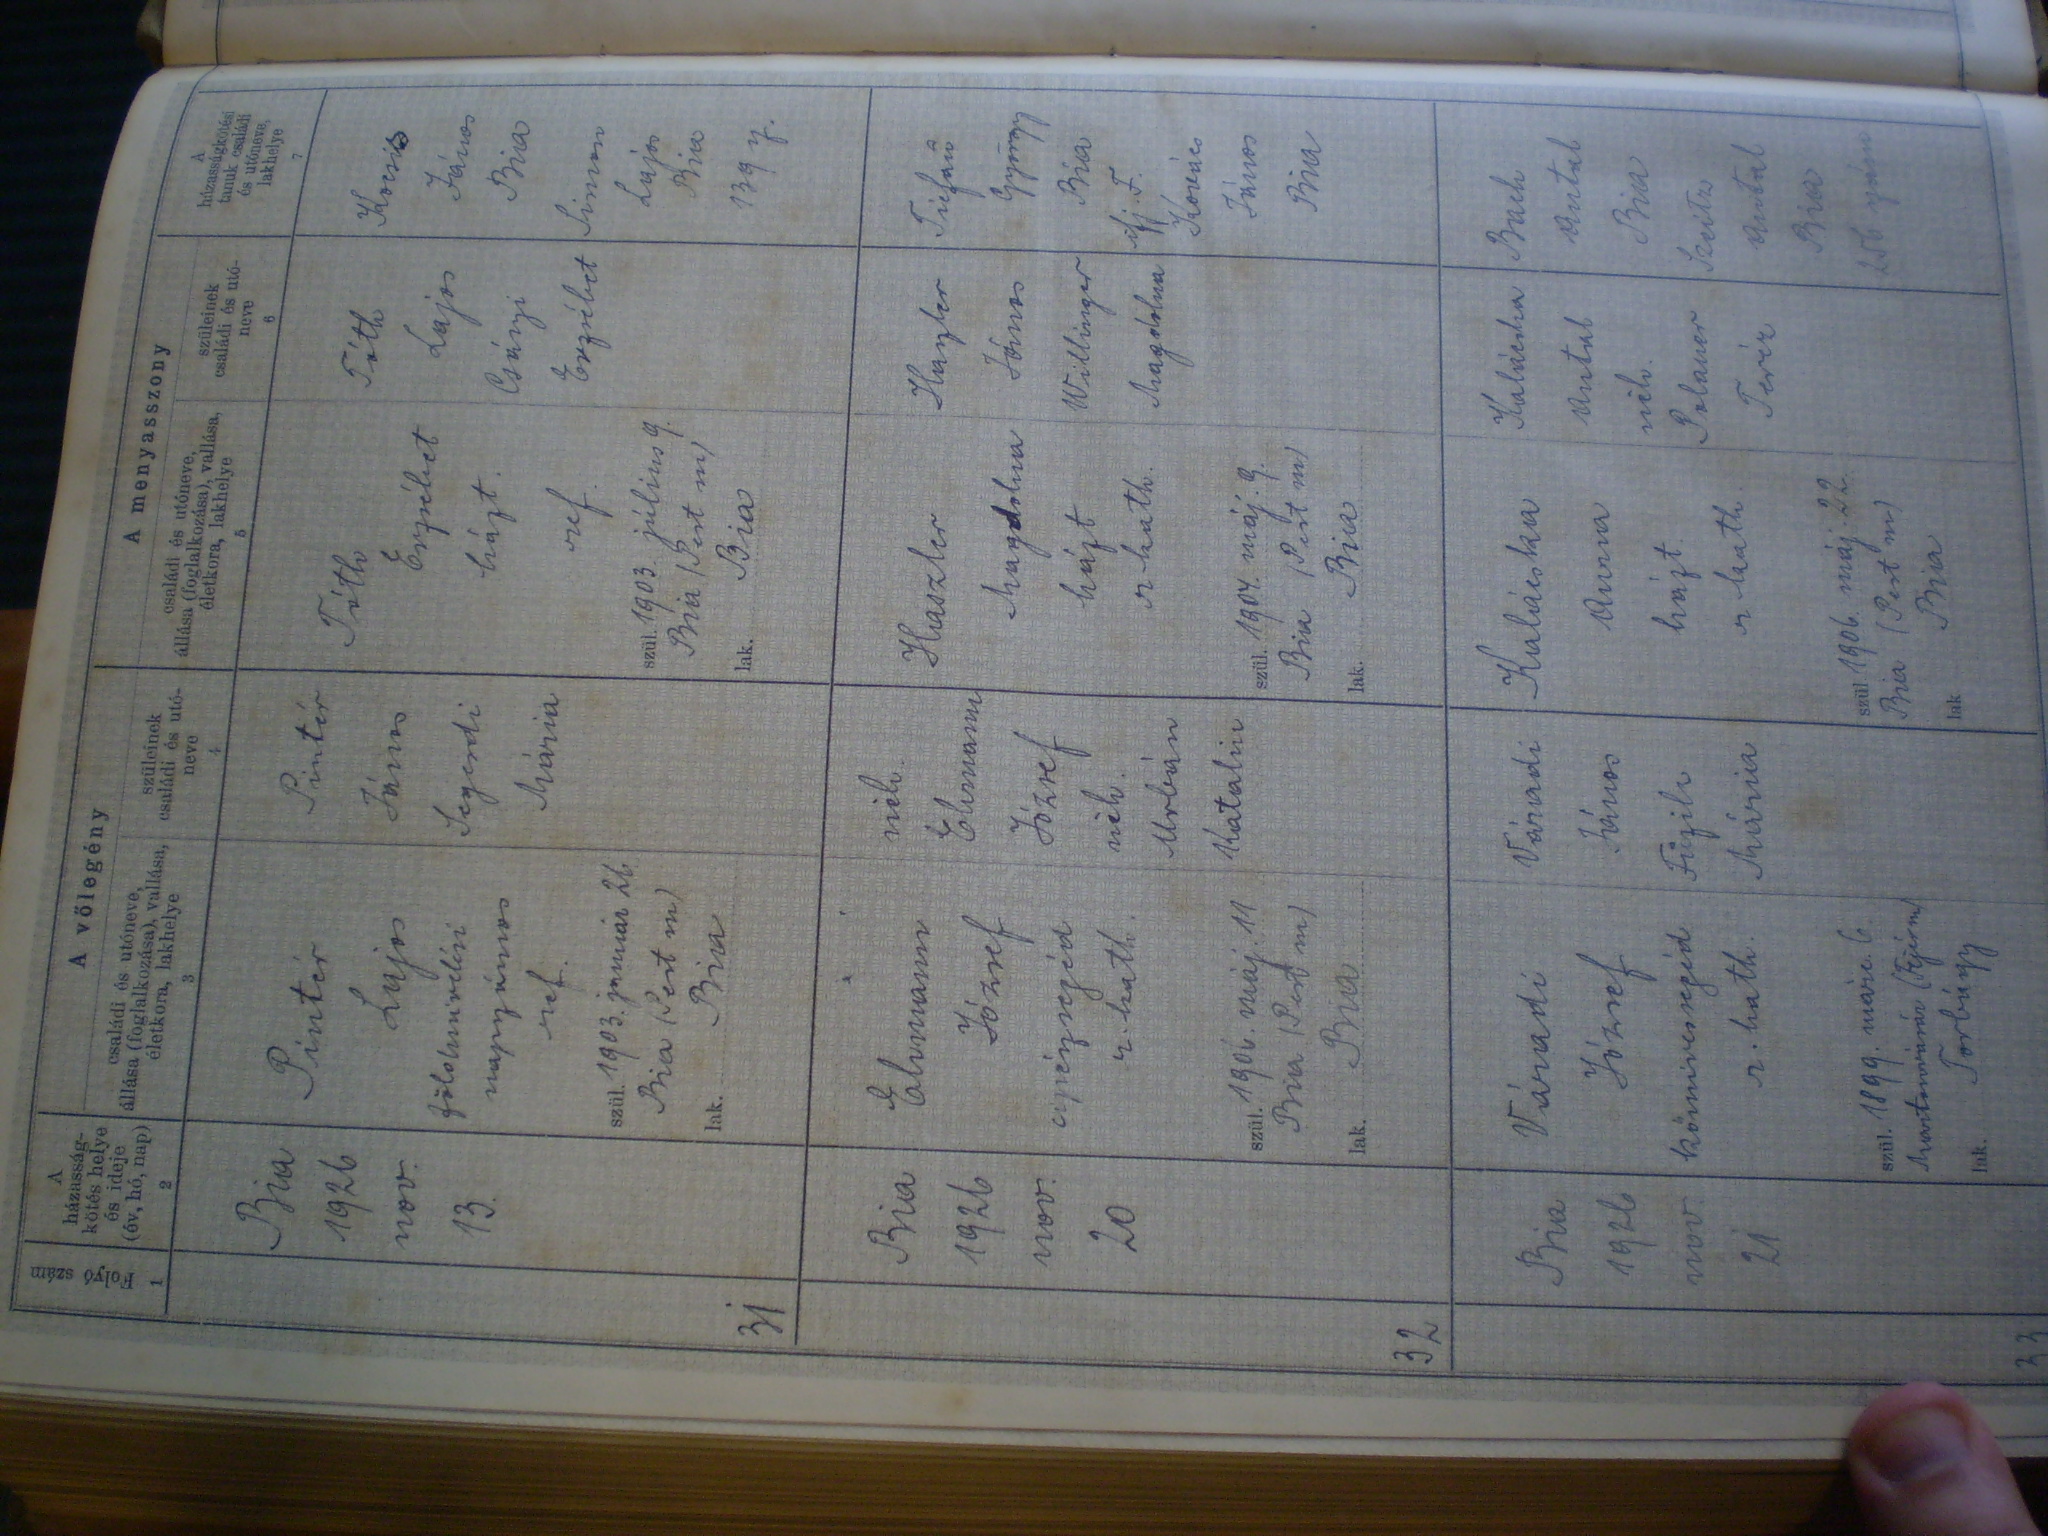 A vőlegény
A menyasszony
Folyó
szám
1
A
házasság-
kötés helye
és ideje
(év, hó, nap)
2
családi és utóneve,
állása (foglalkozása), vallása,
életkora, lakhelye
3
szüleinek
családi és utó-
neve
4
családi és utóneve,
állása (foglalkozása), vallása,
életkora, lakhelye
5
szüleinek
családi és utó-
neve
6
A
házasságkötési
tanuk családi
és utóneve,
lakhelye
7
31
Bia
1926
nov.
13.
Pintér
Lajos
földmivelési
napszámos
ref.
szül. 1903. január 26
Bia (Pest m)
lak. Bia
Pintér
János
Szegedi
Mária
Tóth
Erzsébet
házt.
ref.
szül. 1903. július 9.
Bia (Pest m)
lak. Bia
Tóth
Lajos
Csányi
Erzsébet
Kocsis
János
Bia
Simon
Lajos
Bia
139 sz.
32
Bia
1926
nov.
20
Ehmann
József
cipészsegéd
r. kath.
szül. 1906. máj. 11
Bia (Pest m)
lak. Bia
néh.
Ehmann
József
néh.
Urbán
Katalin
Haszler
Magdolna
házt
r kath.
szül. 1904. máj. 9.
Bia (Pest m)
lak. Bia
Haszler
János
Willinger
Magdolna
György
Bia
ifj. F.
Kovács
János
Bia
33
Bia
1926
nov.
21
Váradi
József
kőmivessegéd
r. kath.
szül. 1899. márc. 6.
(Fejérm)
lak. Torbágy
Váradi
János
Füzih
Mária
Kalácska
Anna
házt.
r kath.
szül 1906. máj. 22.
Bia (Pest m)
lak Bia
Kalácska
Antal
néh.
Polauer
Teréz
Bach
Antal
Bia
Antal
Bia
256 szám